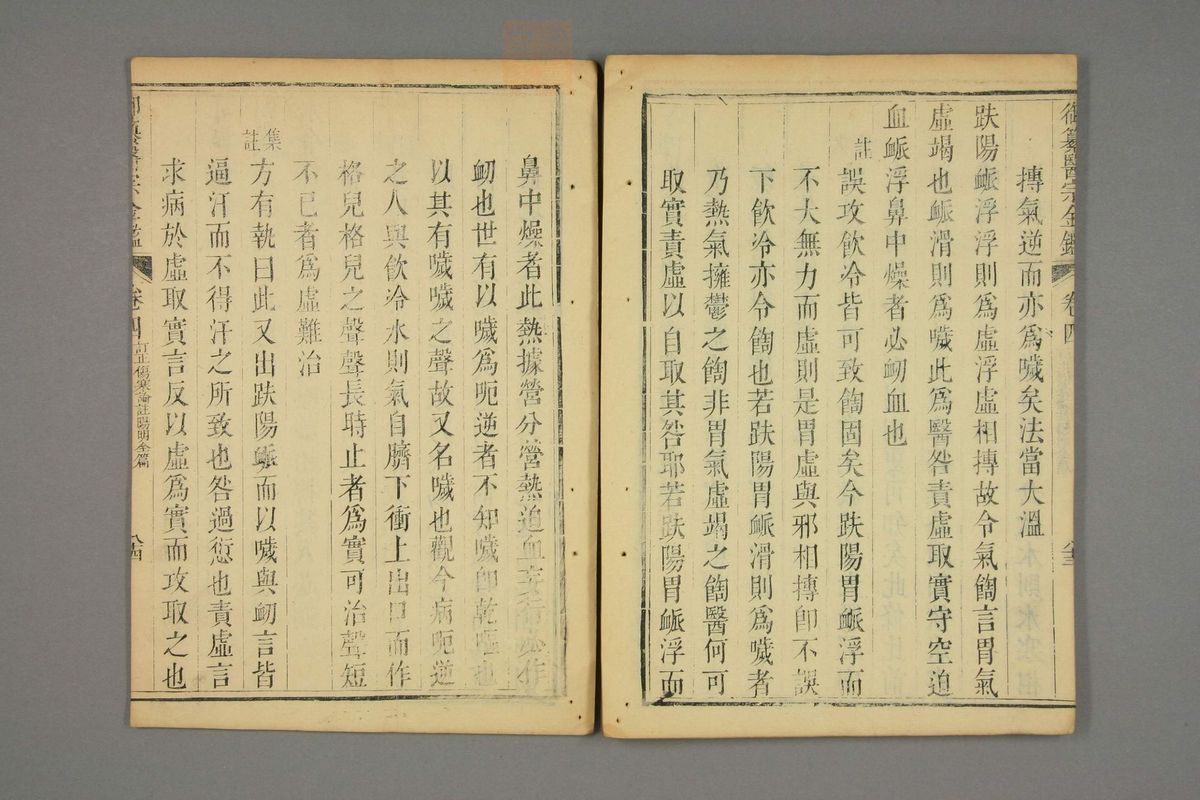 御纂醫宗金鑑 卷四 八三
搏氣逆而亦為噦矣法當大溫
趺陽脈浮浮則為虛浮虛相搏故令氣𩜇言胃氣
虛竭也脈滑則為噦此為醫咎責虛取實守空迫
血脈浮鼻中燥者必衄血也
註
誤攻飲冷皆可致𩜇固矣今趺陽胃脈浮而
不大無力而虛則是胃虛與邪相搏卽不誤
下飲冷亦令𩜇也若趺陽胃脈滑則為噦者
乃熱氣擁鬱之𩜇非胃氣虛竭之𩜇醫何可
取實責虛以自取其咎耶若趺陽胃脈浮而
鼻中燥者此熱據營分營熱迫血
衄也世有以噦為呃逆者不知噦卽乾嘔也
以其有噦噦之聲故又名噦也觀今病呃逆
之人與飲冷水則氣自臍下衝上出口而作
格兒格兒之聲聲長時止者為實可治聲短
不已者為虛難治
集註
方有執曰此又出趺陽脈而以噦與衄言皆
逼汗而不得汗之所致也咎過愆也責虛言
求病於虛取實言反以虛為實而攻取之也
御纂醫宗金鑑 卷四 訂正傷寒論註陽明全篇 八四